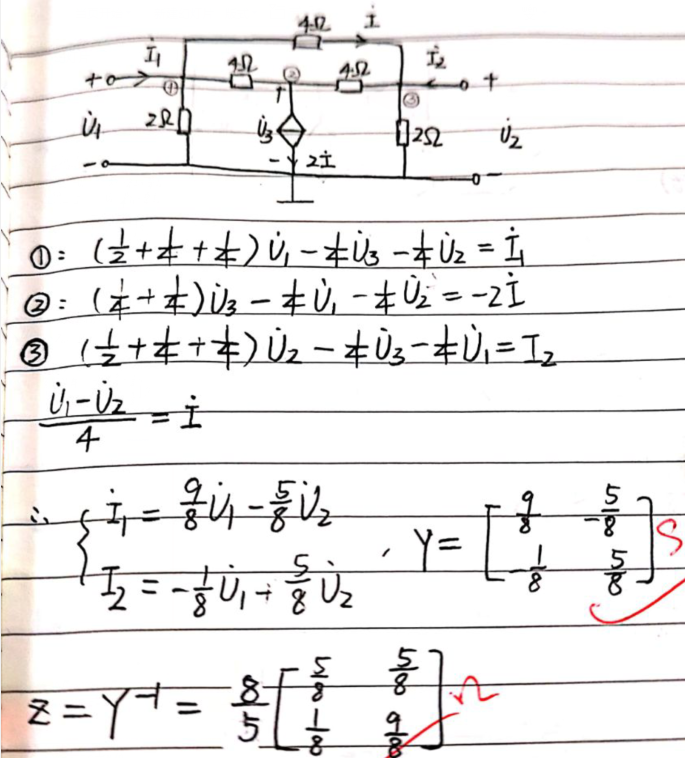 4Ω İ
İ₁ 4Ω ② 4Ω İ₂
+ ① + ③ +
U̇₁ 2Ω U̇₃ 2Ω U̇₂
- - 2İ -
①: (1/2 + 1/4 + 1/4) U̇₁ - 1/4 U̇₃ - 1/4 U̇₂ = İ₁
②: (1/4 + 1/4) U̇₃ - 1/4 U̇₁ - 1/4 U̇₂ = -2İ
③ (1/2 + 1/4 + 1/4) U̇₂ - 1/4 U̇₃ - 1/4 U̇₁ = I₂
(U̇₁ - U̇₂)/4 = İ
∴ { İ₁ = 9/8 U̇₁ - 5/8 U̇₂
I₂ = -1/8 U̇₁ + 5/8 U̇₂ , Y = [9/8 -5/8; -1/8 5/8] S
z = Y⁻¹ = 8/5 [5/8 5/8; 1/8 9/8] Ω